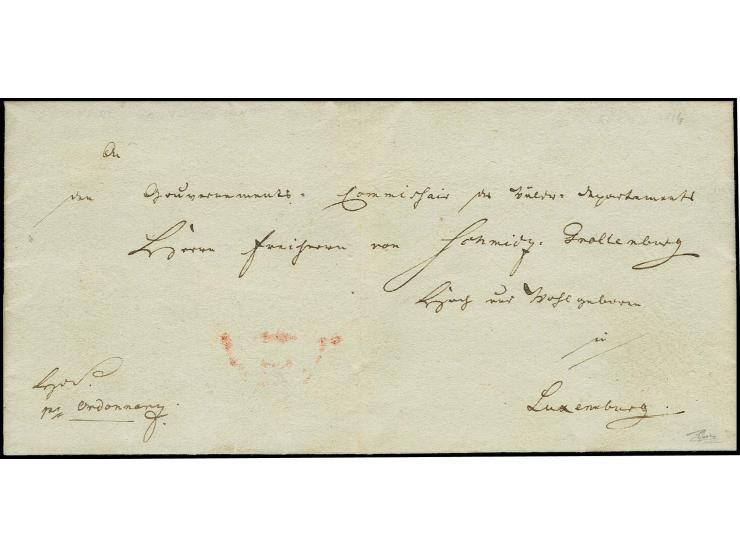 An
den Gouvernements-Commissair des Wälder-Departements
Herrn Freiherrn von Schmidz-Grollenburg
Hoch und Wohlgeboren
zu
Luxemburg.